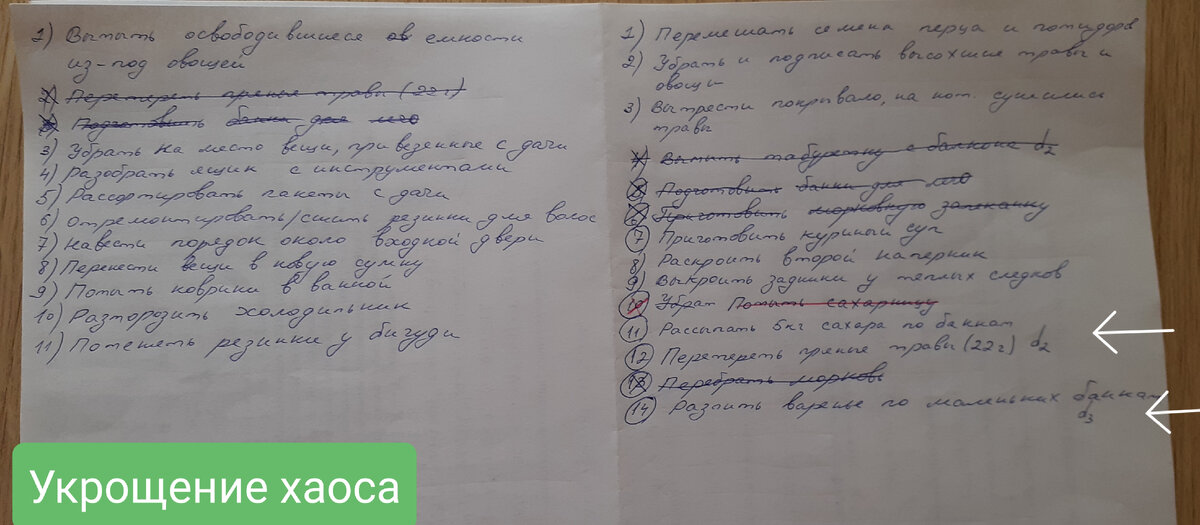 1) Вымыть освободившиеся ов емкости
из-под овощей
2) Перетереть пряные травы (22г)
3) Подготовить банки для него
3) Убрать на место вещи, привезенные с дачи
4) Разобрать ящик с инструментами
5) Рассортировать пакеты с дачи
6) Отремонтировать/сшить резинки для волос
7) Навести порядок около входной двери
8) Перенести вещи в новую сумку
9) Помыть коврики в ванной
10) Разморозить холодильник
11) Поменять резинки у бигуди
1) Перемешать семена перца и помидоров
2) Убрать и подписать высохшие травы и
овощи
3) Вытрясти покрывало, на кот. сушились
травы
4) Вымыть табуретку с балкона d2
5) Подготовить банки для него
6) Приготовить морковную запеканку
7) Приготовить куриный суп
8) Раскроить второй наперник
9) Выкроить задники у теплых следков
10) Убрат Помыть сахарницу
11) Рассыпать 5кг сахара по банкам
12) Перетереть пряные травы (22г) d2
13) Перебрать морковь
14) Разлить варенье по маленьких банкам
d3
Укрощение хаоса